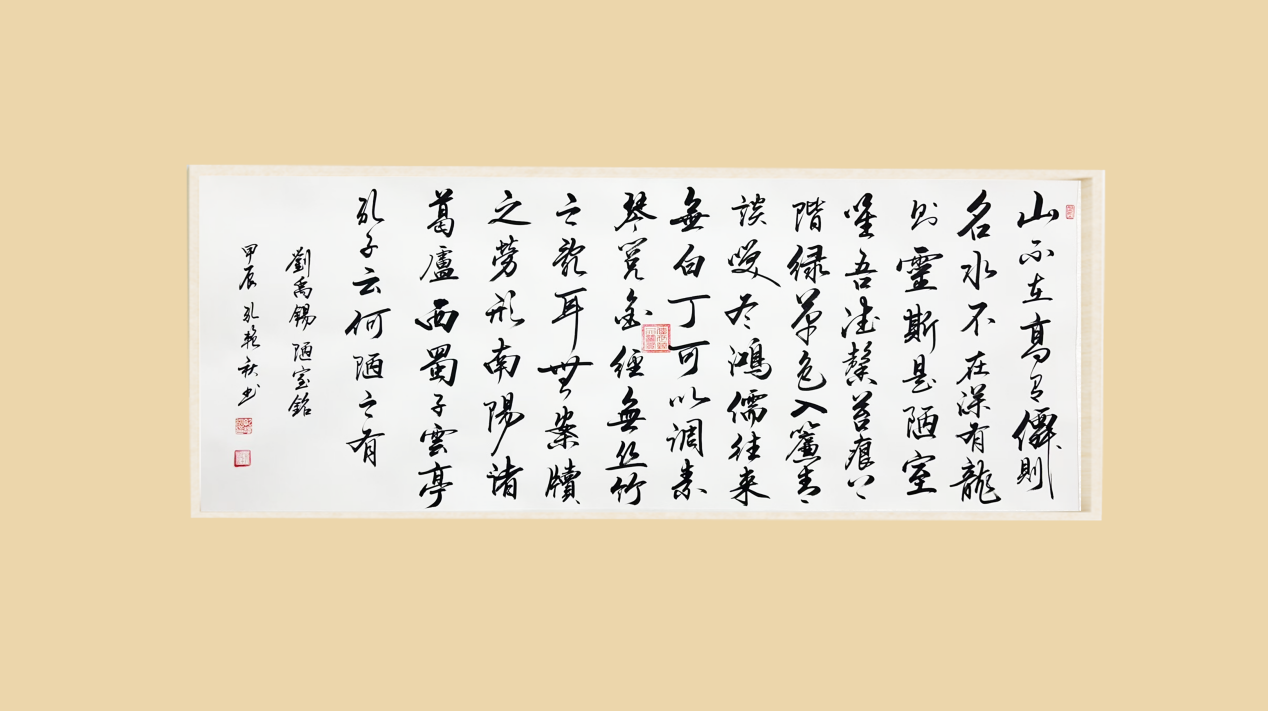 山不在高有僊則
名水不在深有龍
则靈斯是陋室
唯吾德馨苔痕上
階緑草色入簾青
談咲有鴻儒往来
無白丁可以調素
琴閲金經無丝竹
之亂耳無案牘
之勞形南陽諸
葛廬西蜀子雲亭
孔子云何陋之有
劉禹錫 陋室銘
甲辰 孔秋书